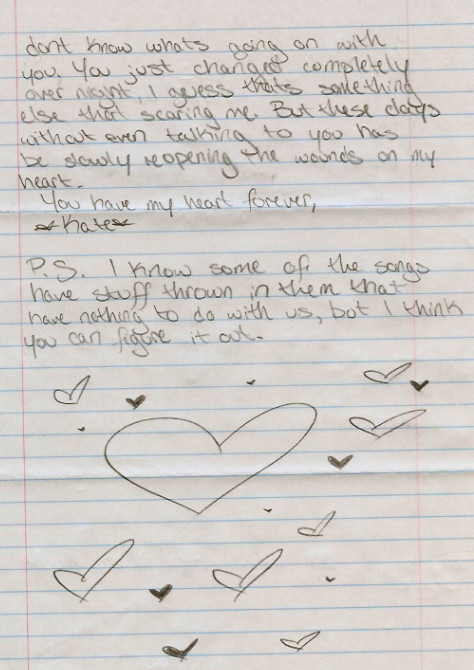 dont know whats going on with
you. You just changed completely
over night, I guess thats something
else that scaring me. But these days
without even talking to you has
be slowly reopening the wounds on my
heart.
You have my heart forever,
Kate
P.S. I know some of the songs
have stuff thrown in them that
have nothing to do with us, but I think
you can figure it out.